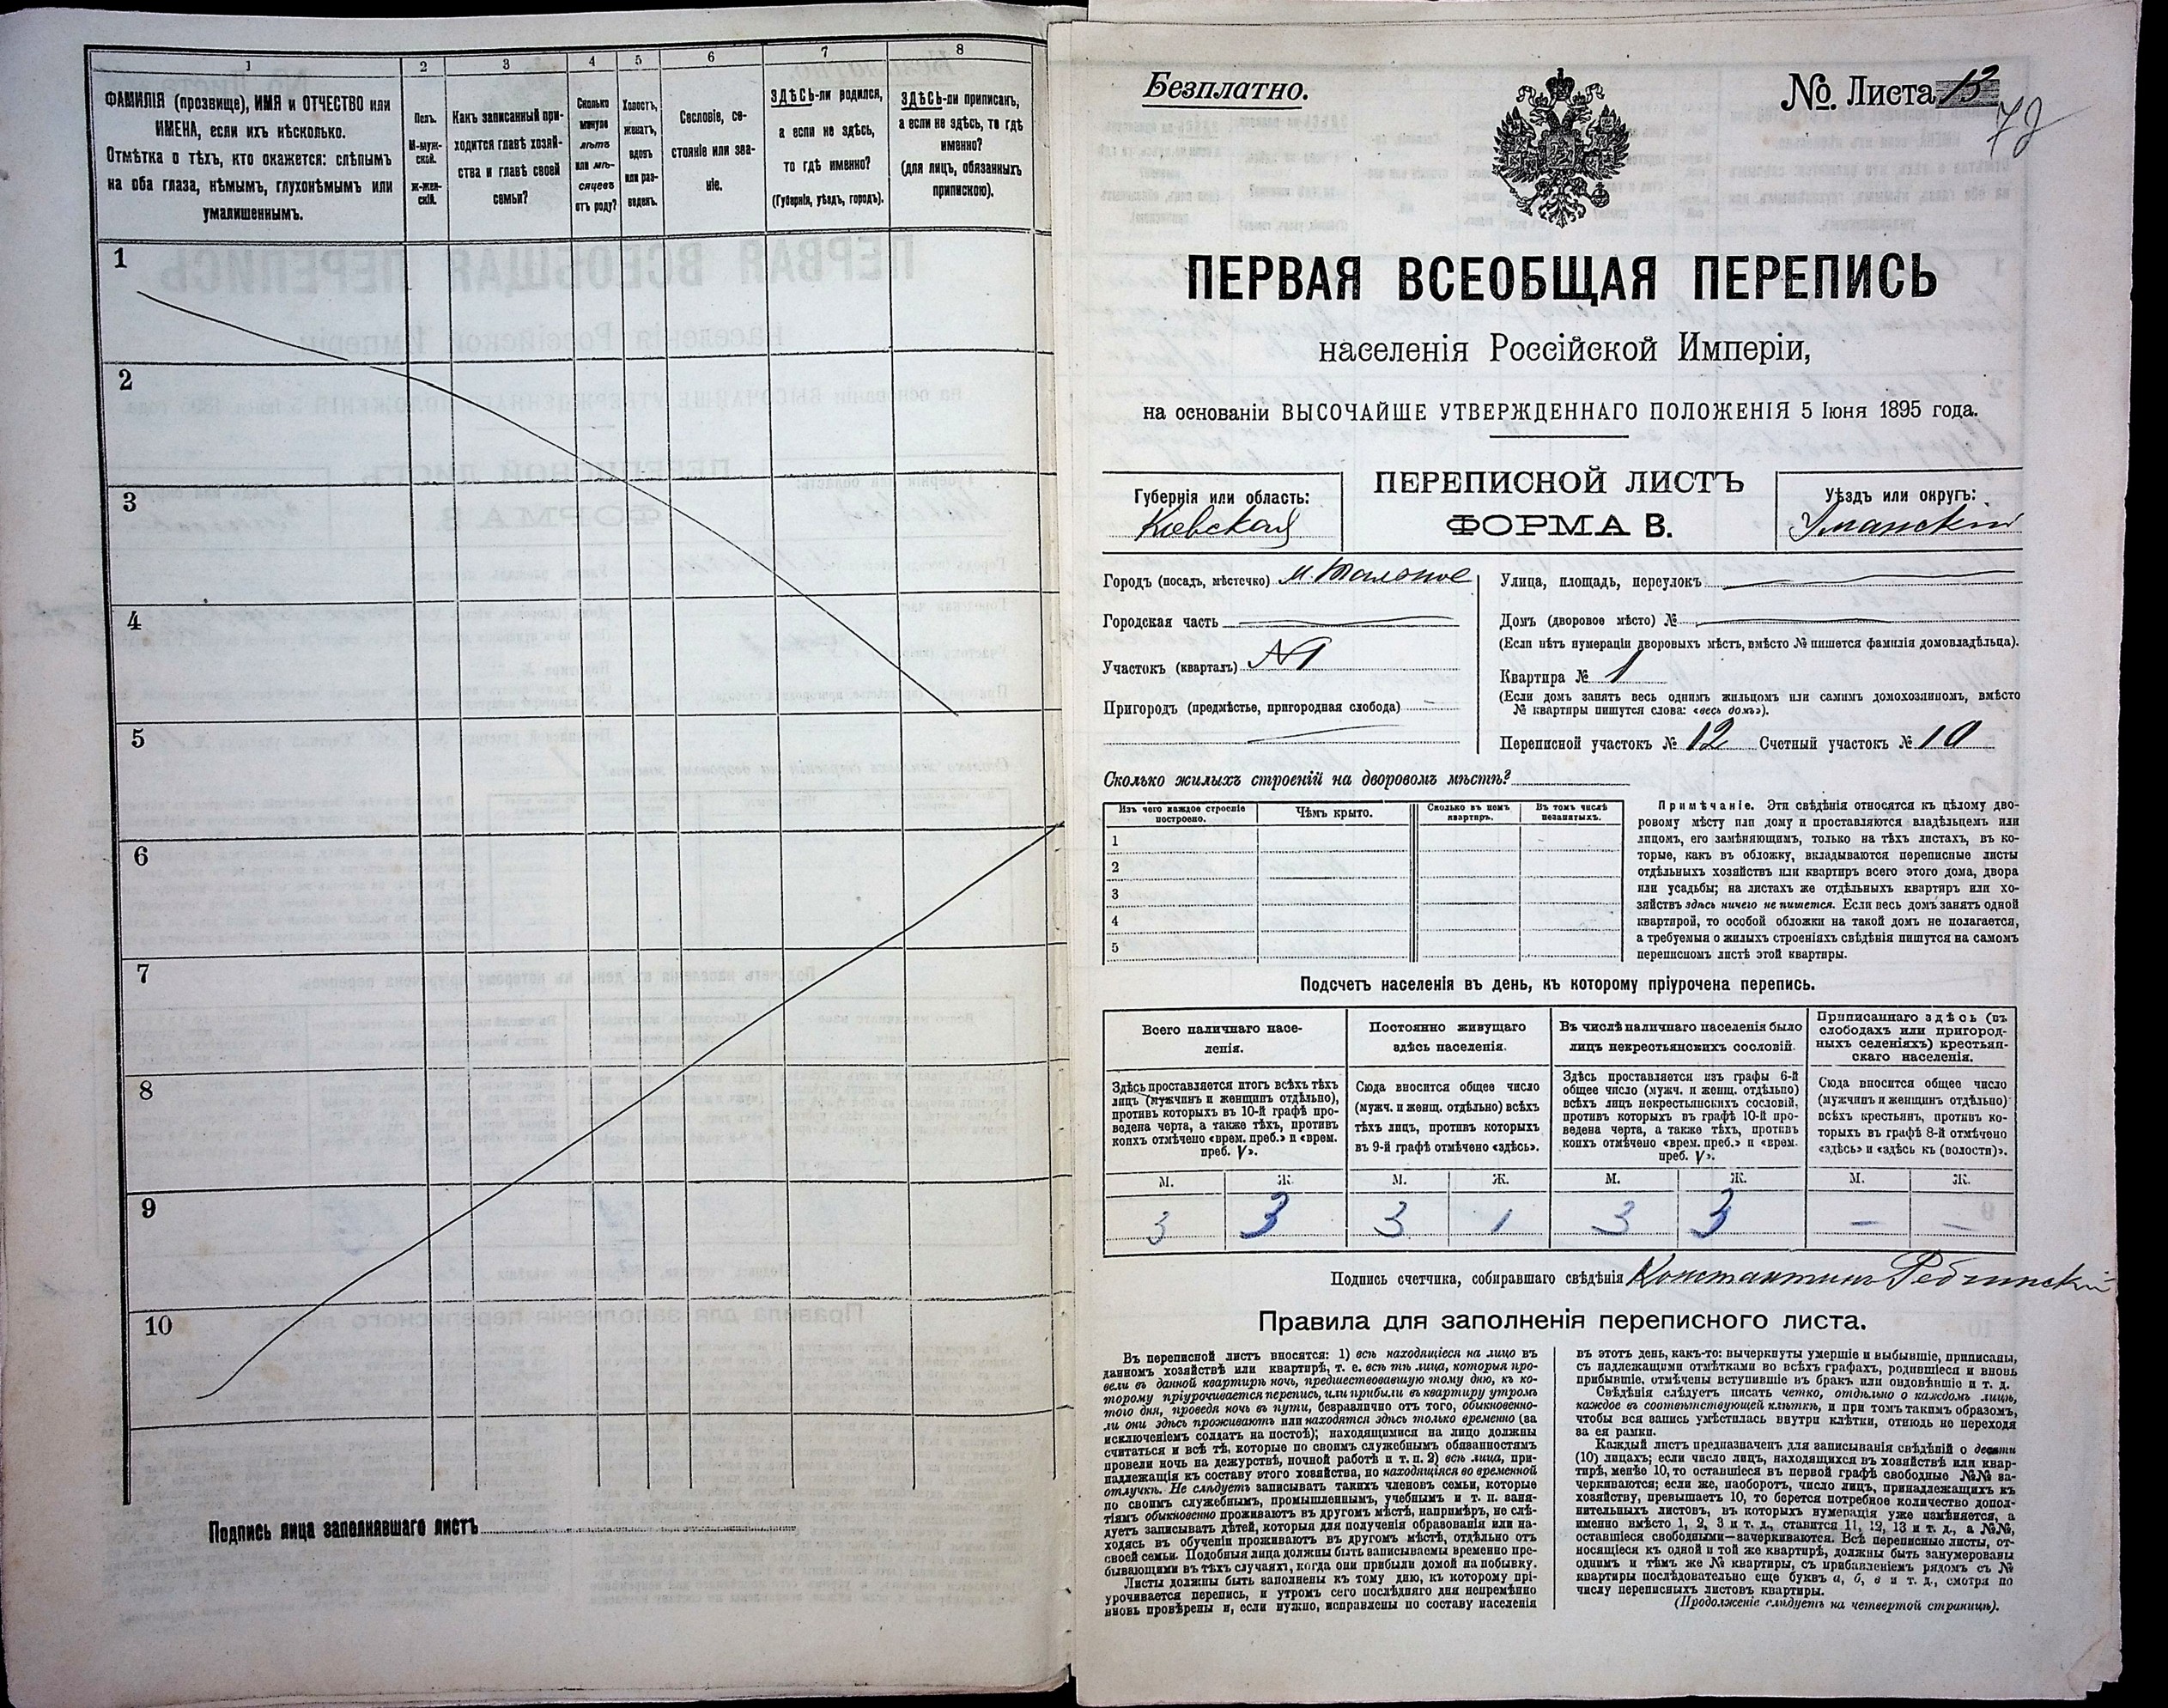 1
2
3
4
5
6
7
8
ФАМИЛІЯ (прозвище), ИМЯ и ОТЧЕСТВО или
ИМЕНА, если ихъ нѣсколько.
Отмѣтка о тѣхъ, кто окажется: слѣпымъ
на оба глаза, нѣмымъ, глухонѣмымъ или
умалишеннымъ.
Полъ.
М-муж-
ской.
Ж-жен-
скій.
Какъ записанный при-
ходится главѣ хозяй-
ства и главѣ своей
семьи?
Сколько
минуло
лѣтъ
или мѣ-
сяцевъ
отъ роду?
Холостъ,
женатъ,
вдовъ
или раз-
веденъ.
Сословіе, со-
стояніе или зва-
ніе.
ЗДѢСЬ-ли родился,
а если не здѣсь,
то гдѣ именно?
(Губернія, уѣздъ, городъ).
ЗДѢСЬ-ли приписанъ,
а если не здѣсь, то гдѣ
именно?
(для лицъ, обязанныхъ
припискою).
1
2
3
4
5
6
7
8
9
10
Подпись лица заполнявшаго листъ
Безплатно.
№. Листа 13
ПЕРВАЯ ВСЕОБЩАЯ ПЕРЕПИСЬ
населенія Россійской Имперіи,
на основаніи ВЫСОЧАЙШЕ УТВЕРЖДЕННАГО ПОЛОЖЕНІЯ 5 Іюня 1895 года.
Губернія или область:
Кіевская
ПЕРЕПИСНОЙ ЛИСТЪ
ФОРМА В.
Уѣздъ или округъ:
Уманскій
Городъ (посадъ, мѣстечко) м. Тальное
Городская часть
Участокъ (кварталъ) №1
Пригородъ (предмѣстье, пригородная слобода)
Улица, площадь, переулокъ
Домъ (дворовое мѣсто) №
(Если нѣтъ нумераціи дворовыхъ мѣстъ, вмѣсто № пишется фамилія домовладѣльца).
Квартира № 1
(Если домъ занятъ весь однимъ жильцомъ или самимъ домохозяиномъ, вмѣсто
№ квартиры пишутся слова: «весь домъ»).
Переписной участокъ № 12 Счетный участокъ № 10
Сколько жилыхъ строеній на дворовомъ мѣстѣ?
Изъ чего каждое строеніе
построено.
Чѣмъ крыто.
Сколько въ немъ
квартиръ.
Въ томъ числѣ
незанятыхъ.
1
2
3
4
5
Примѣчаніе. Эти свѣдѣнія относятся къ цѣлому дво-
ровому мѣсту или дому и проставляются владѣльцемъ или
лицомъ, его замѣняющимъ, только на тѣхъ листахъ, въ ко-
торые, какъ въ обложку, вкладываются переписные листы
отдѣльныхъ хозяйствъ или квартиръ всего этого дома, двора
или усадьбы; на листахъ же отдѣльныхъ квартиръ или хо-
зяйствъ здѣсь ничего не пишется. Если весь домъ занятъ одной
квартирой, то особой обложки на такой домъ не полагается,
а требуемыя о жилыхъ строеніяхъ свѣдѣнія пишутся на самомъ
переписномъ листѣ этой квартиры.
Подсчетъ населенія въ день, къ которому пріурочена перепись.
Всего наличнаго насе-
ленія.
Здѣсь проставляется итогъ всѣхъ тѣхъ
лицъ (мужчинъ и женщинъ отдѣльно),
противъ которыхъ въ 10-й графѣ про-
ведена черта, а также тѣхъ, противъ
коихъ отмѣчено «врем. преб.» и «врем.
преб. V».
Постоянно живущаго
здѣсь населенія.
Сюда вносится общее число
(мужч. и женщ. отдѣльно) всѣхъ
тѣхъ лицъ, противъ которыхъ
въ 9-й графѣ отмѣчено «здѣсь».
Въ числѣ наличнаго населенія было
лицъ некрестьянскихъ сословій.
Здѣсь проставляется изъ графы 6-й
общее число (мужч. и женщ. отдѣльно)
всѣхъ лицъ некрестьянскихъ сословій,
противъ которыхъ въ графѣ 10-й про-
ведена черта, а также тѣхъ, противъ
коихъ отмѣчено «врем. преб.» и «врем.
преб. V».
Приписаннаго здѣсь (въ
слободахъ или пригород-
ныхъ селеніяхъ) крестьян-
скаго населенія.
Сюда вносится общее число
(мужчинъ и женщинъ отдѣльно)
всѣхъ крестьянъ, противъ ко-
торыхъ въ графѣ 8-й отмѣчено
«здѣсь» и «здѣсь къ (волости)».
М. Ж. М. Ж. М. Ж. М. Ж.
3 3 3 1 3 3 — —
Подпись счетчика, собиравшаго свѣдѣнія Константинъ
Правила для заполненія переписного листа.
Въ переписной листъ вносятся: 1) всѣ находящіеся на лицо въ
данномъ хозяйствѣ или квартирѣ, т. е. всѣ тѣ лица, которыя про-
вели въ данной квартирѣ ночь, предшествовавшую тому дню, къ ко-
торому пріурочивается перепись, или прибыли въ квартиру утромъ
того дня, проведя ночь въ пути, безразлично отъ того, обыкновенно-
ли они здѣсь проживаютъ или находятся здѣсь только временно (за
исключеніемъ солдатъ на постоѣ); находящимися на лицо должны
считаться и всѣ тѣ, которые по своимъ служебнымъ обязанностямъ
провели ночь на дежурствѣ, ночной работѣ и т. п. 2) всѣ лица, при-
надлежащія къ составу этого хозяйства, но находящіяся во временной
отлучкѣ. Не слѣдуетъ записывать такихъ членовъ семьи, которые
по своимъ служебнымъ, промышленнымъ, учебнымъ и т. п. заня-
тіямъ обыкновенно проживаютъ въ другомъ мѣстѣ, напримѣръ, не слѣ-
дуетъ записывать дѣтей, которыя для полученія образованія или на-
ходясь въ обученіи проживаютъ въ другомъ мѣстѣ, отдѣльно отъ
своей семьи. Подобныя лица должны быть записываемы временно пре-
бывающими въ тѣхъ случаяхъ, когда они прибыли домой на побывку.
Листы должны быть заполнены къ тому дню, къ которому прі-
урочивается перепись, и утромъ сего послѣдняго дня непремѣнно
вновь провѣрены и, если нужно, исправлены по составу населенія
въ этотъ день, какъ-то: вычеркнуты умершіе и выбывшіе, приписаны,
съ надлежащими отмѣтками во всѣхъ графахъ, родившіеся и вновь
прибывшіе, отмѣчены вступившіе въ бракъ или овдовѣвшіе и т. д.
Свѣдѣнія слѣдуетъ писать четко, отдѣльно о каждомъ лицѣ,
каждое въ соотвѣтствующей клѣткѣ, и при томъ такимъ образомъ,
чтобы вся запись умѣстилась внутри клѣтки, отнюдь не переходя
за ея рамки.
Каждый листъ предназначенъ для записыванія свѣдѣній о десяти
(10) лицахъ; если число лицъ, находящихся въ хозяйствѣ или квар-
тирѣ, менѣе 10, то оставшіеся въ первой графѣ свободные №№ за-
черкиваются; если же, наоборотъ, число лицъ, принадлежащихъ къ
хозяйству, превышаетъ 10, то берется потребное количество допол-
нительныхъ листовъ, въ которыхъ нумерація уже измѣняется, а
именно вмѣсто 1, 2, 3 и т. д., ставится 11, 12, 13 и т. д., а №№,
оставшіеся свободными—зачеркиваются. Всѣ переписные листы, от-
носящіеся къ одной и той же квартирѣ, должны быть занумерованы
однимъ и тѣмъ же № квартиры, съ прибавленіемъ рядомъ съ №
квартиры послѣдовательно еще буквъ а, б, в и т. д., смотря по
числу переписныхъ листовъ квартиры.
(Продолженіе слѣдуетъ на четвертой страницѣ).